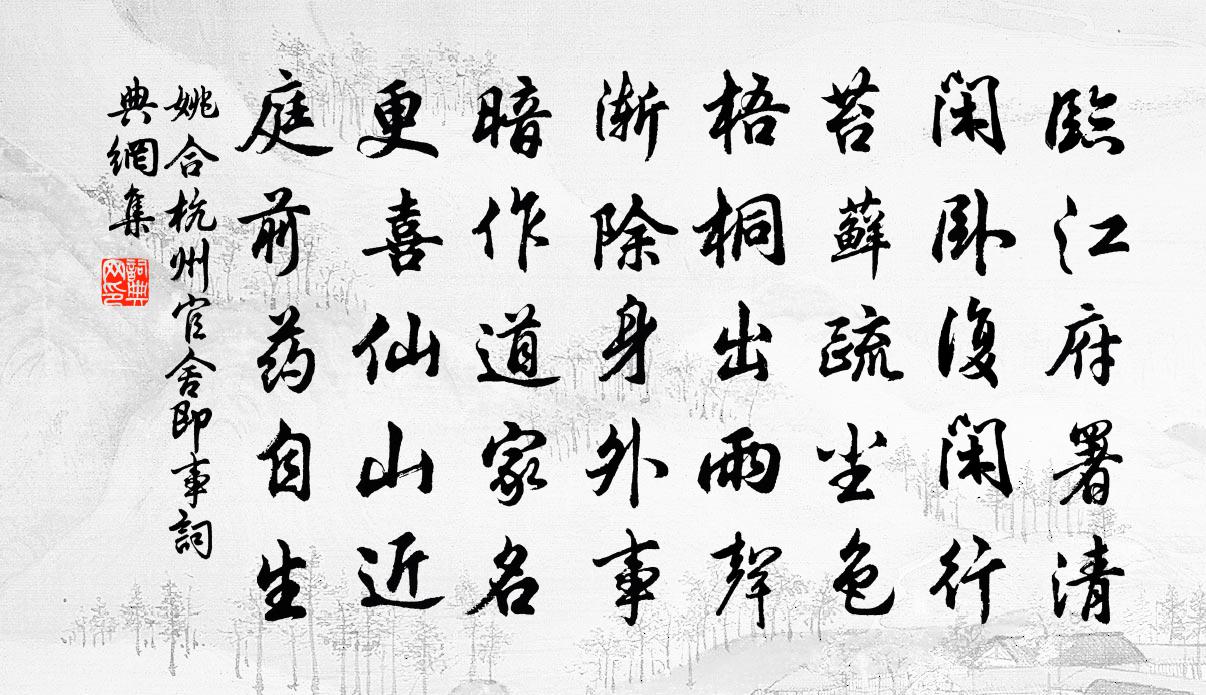 臨江府署清
閑卧復閑行
苔蘚疏尘色
梧桐出雨聲
漸除身外事
暗作道家名
更喜仙山近
庭前药自生
姚合杭州官舍即事詞
典網集
詞典网印